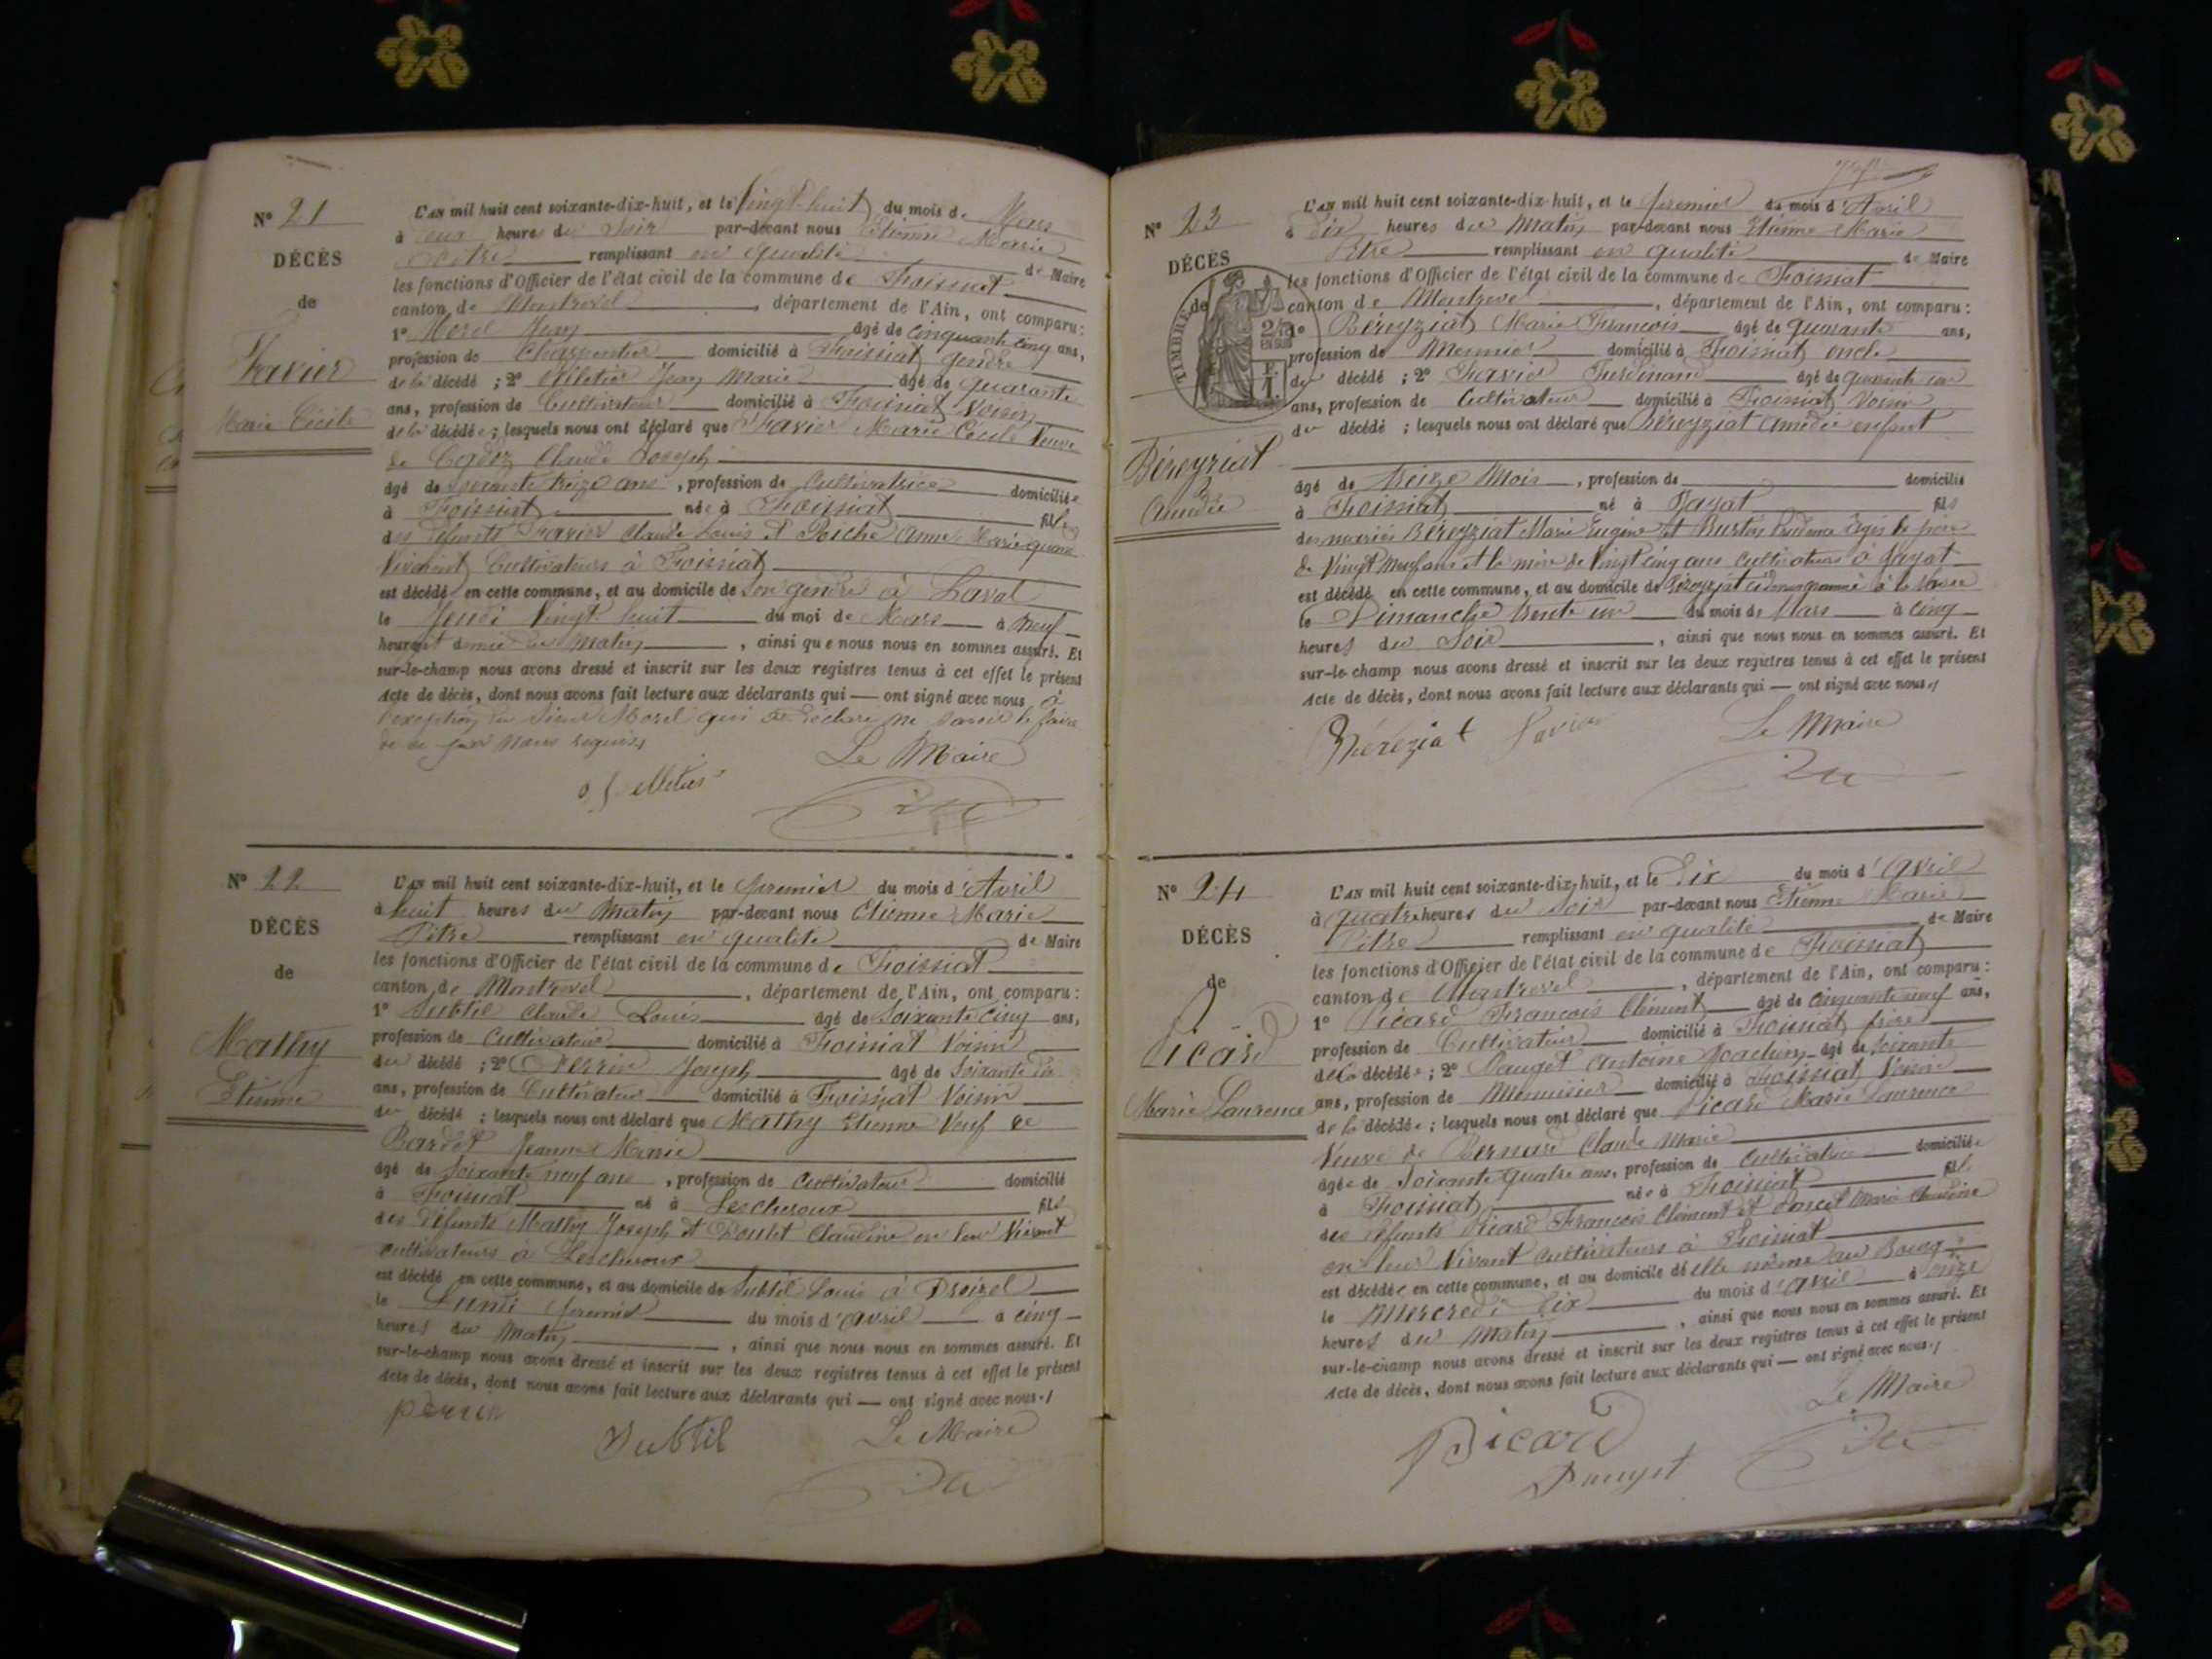 N° 21
DÉCÈS
de
Favier
Marie Cécile
L'AN mil huit cent soixante-dix-huit, et le Vingt huit du mois de Mars
à deux heures du Soir par-devant nous Etienne Marie
Pitre remplissant en qualité de Maire
les fonctions d'Officier de l'état civil de la commune de Foissiat
canton de Montrevel, département de l'Ain, ont comparu :
1° Morel Jean âgé de cinquante cinq ans,
profession de Charpentier domicilié à Foissiat gendre
de la décédé ; 2° Pelletier Jean Marie âgé de quarante
ans, profession de Cultivateur domicilié à Foissiat Voisin
de la décédée ; lesquels nous ont déclaré que Favier Marie Cécile Veuve
de Claude Joseph
âgé de soixante treize ans, profession de Cultivatrice domiciliée
à Foissiat née à Foissiat fille
des défunts Favier Claude Louis et Roche Anne Marie quand
Vivaient Cultivateurs à Foissiat
est décédée en cette commune, et au domicile de son gendre à Laval
le Jeudi Vingt huit du moi de Mars à Neuf
heures et demie du Matin, ainsi que nous nous en sommes assuré. Et
sur-le-champ nous avons dressé et inscrit sur les deux registres tenus à cet effet le présent
Acte de décès, dont nous avons fait lecture aux déclarants qui — ont signé avec nous à
l'exception du Sieur Morel qui a déclaré ne savoir le faire
de ce par Nous requis
Le Maire
N° 22
DÉCÈS
de
Mathy
Etienne
L'AN mil huit cent soixante-dix-huit, et le premier du mois d'Avril
à huit heures du Matin par-devant nous Etienne Marie
Pitre remplissant en qualité de Maire
les fonctions d'Officier de l'état civil de la commune de Foissiat
canton de Montrevel, département de l'Ain, ont comparu :
1° Subtil Claude Louis âgé de Soixante Cinq ans,
profession de Cultivateur domicilié à Foissiat Voisin
du décédé ; 2° Perrin Joseph âgé de Soixante dix
ans, profession de Cultivateur domicilié à Foissiat Voisin
du décédé ; lesquels nous ont déclaré que Mathy Etienne Veuf de
Bardet Jeanne Marie
âgé de Soixante neuf ans, profession de Cultivateur domicilié
à Foissiat né à Lescheroux fils
des défunts Mathy Joseph et Claudine en leur Vivant
cultivateurs à Lescheroux
est décédé en cette commune, et au domicile de Subtil Louis à
le Lundi premier du mois d'avril à cinq
heures du Matin, ainsi que nous nous en sommes assuré. Et
sur-le-champ nous avons dressé et inscrit sur les deux registres tenus à cet effet le présent
Acte de décès, dont nous avons fait lecture aux déclarants qui — ont signé avec nous./
perrin
Subtil
Le Maire
N° 23
DÉCÈS
de
TIMBRE
Béreyziat
Amédée
L'AN mil huit cent soixante-dix-huit, et le premier du mois d'Avril
à dix heures du Matin par-devant nous Etienne Marie
Pitre remplissant en qualité de Maire
les fonctions d'Officier de l'état civil de la commune de Foissiat
canton de Montrevel, département de l'Ain, ont comparu :
1° Béreyziat Marie François âgé de quarante ans,
profession de Meunier domicilié à Foissiat oncle
du décédé ; 2° Favier Ferdinand âgé de quarante un
ans, profession de Cultivateur domicilié à Foissiat Voisin
du décédé ; lesquels nous ont déclaré que Béreyziat Amédée enfant
âgé de Treize Mois, profession de domicilié
à Foissiat né à Jayat fils
des mariés Béreyziat Marie Eugène et Prudence âgés le père
de Vingt Neuf ans et la mère de Vingt cinq ans Cultivateurs à Jayat
est décédé en cette commune, et au domicile de Béreyziat
le Dimanche trente un du mois de Mars à cinq
heures du Soir, ainsi que nous nous en sommes assuré. Et
sur-le-champ nous avons dressé et inscrit sur les deux registres tenus à cet effet le présent
Acte de décès, dont nous avons fait lecture aux déclarants qui — ont signé avec nous./
Béréziat Favier
Le Maire
N° 24
DÉCÈS
de
Picard
Marie Laurence
L'AN mil huit cent soixante-dix-huit, et le Dix du mois d'avril
à quatre heures du Soir par-devant nous Etienne Marie
Pitre remplissant en qualité de Maire
les fonctions d'Officier de l'état civil de la commune de Foissiat
canton de Montrevel, département de l'Ain, ont comparu :
1° Picard François Clément âgé de cinquante neuf ans,
profession de Cultivateur domicilié à Foissiat frère
de la décédée ; 2° Antoine Joachim âgé de soixante
ans, profession de Menuisier domicilié à Foissiat Voisin
de la décédée ; lesquels nous ont déclaré que Picard Marie Laurence
Veuve de Bernard Claude Marie
âgée de Soixante quatre ans, profession de Cultivatrice domiciliée
à Foissiat née à Foissiat fille
des défunts Picard François Clément et Marie Claudine
en leur Vivant cultivateurs à Foissiat
est décédée en cette commune, et au domicile de elle même au Bourg
le Mercredi Dix du mois d'avril à onze
heures du Matin, ainsi que nous nous en sommes assuré. Et
sur-le-champ nous avons dressé et inscrit sur les deux registres tenus à cet effet le présent
Acte de décès, dont nous avons fait lecture aux déclarants qui — ont signé avec nous./
Le Maire
Picard